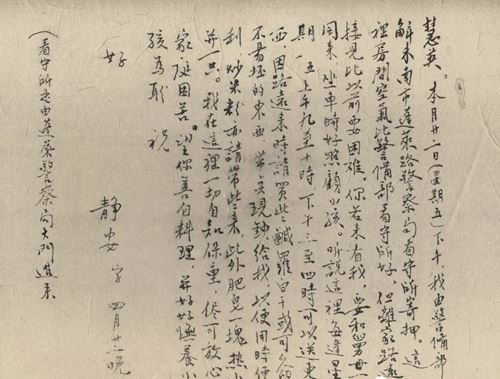 慧英。本月廿二日(星期五)下午,我由警備部
解來南市蓬萊路警察局看守所寄押,這
裡房間空氣比警備部看守所好,但離家路遠
接見比以前更困難,你若來看我,要和舅母一
同來,坐車時好照顧小孩。听說這裡每逢星
期一、五上午九至十時下午三至四時可以送東
西,因路遠來時請買些鹹羅白干或可久留
不易壞的東西,帶些現鈔給我,以便用時便
利,炒米粉亦請帶些來,此外肥皂一塊,熱水
并一只。我在這裡一切自知保重,侭可放心
家庭困苦。望你善自料理,并好好撫養小
孩為盼 祝
好
靜安 字 四月廿二晚
(看守所是由蓬萊警察局大門進來